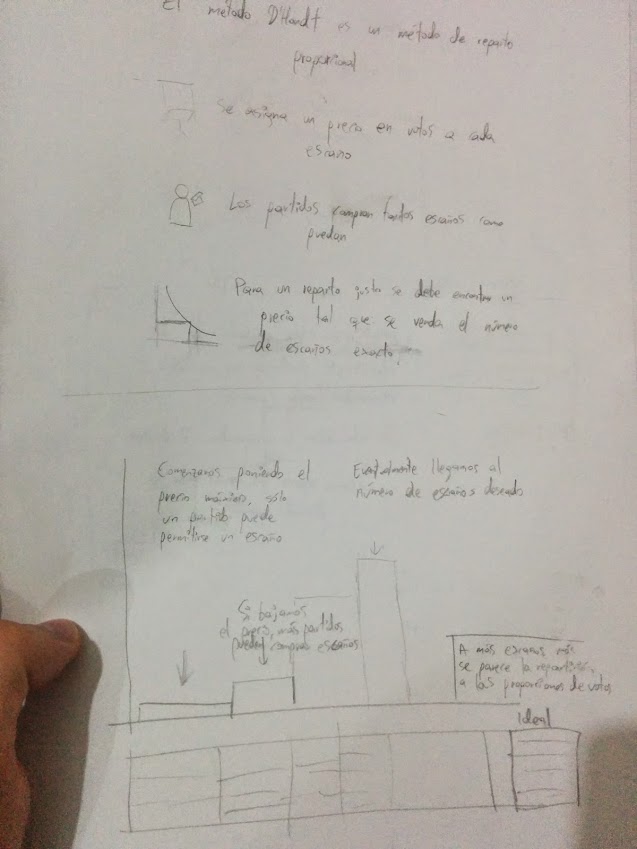 El método D'Hondt es un método de reparto
proporcional
Se assigna un precio en votos a cada
escaño
Los partidos compran tantos escaños como
puedan
Para un reparto justo se debe encontrar un
precio tal que se venda el número
de escaños exacto.
Comenzamos poniendo el
precio máximo, sólo
un partido puede
permitirse un escaño
Eventualmente llegamos al
número de escaños deseado
Si bajamos
el precio, más partidos
pueden comprar escaños
A más escaños más
se parece la repartición
a las proporciones de votos
Ideal